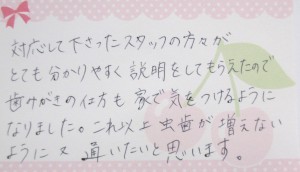 対応して下さったスタッフの方々が
とても分かりやすく説明をしてもらえたので
歯みがきの仕方も家で気をつけるように
なりました。これ以上虫歯が増えない
ように又通いたいと思います。